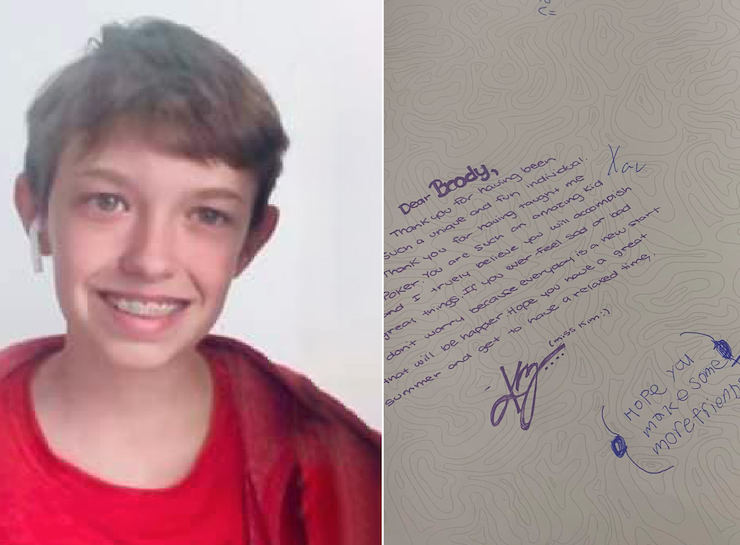 Dear Brody,
Thank you for having been
such a unique and fun individual.
Thank you for having taught me
Poker. You are such an amazing kid
and I truely believe you will accomplish
great things. If you ever feel sad or bad
don't worry because everyday is a new start
that will be happier. Hope you have a great
summer and get to have a relaxed time.
(miss Kim:)
Xav
HOPE YOU
make some
more friends